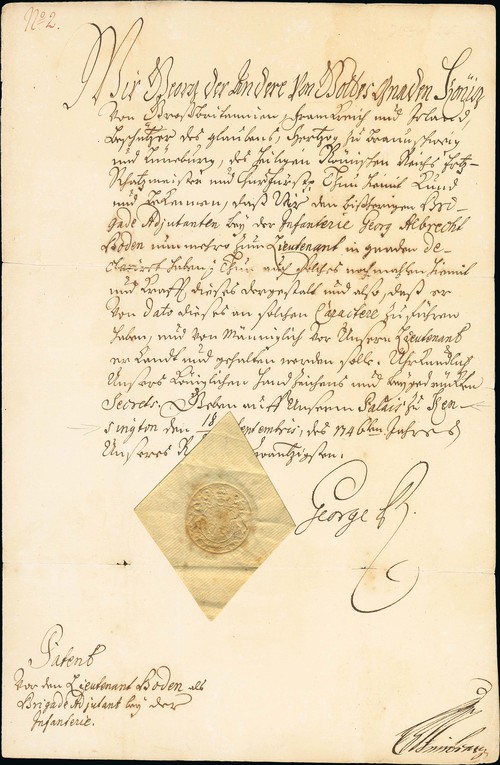 No 2.
Wir Georg der Andere von Gottes Gnaden König
von Grosbritannien, Franckreich und Irland,
Beschützer des glaubens, Hertzog zu Braunschweig
und Lüneburg, des Heiligen Römischen Reichs Ertz-
Schatzmeister und Churfürst, Thun hiemit Kund
und bekennen, daß Wir den bißherigen Bri-
gade Adjutanten bey der Infanterie Georg Albrecht
Boden nunmehro zum Lieutenant in gnaden de-
clariret haben; Thun auch solches nochmahlen hiemit
und Krafft dieses dergestalt und also, daß er
von dato dieses an solchen Caractere zu führen
haben, und von Männiglich vor Unsern Lieutenant
erkandt und gehalten werden solle. Uhrkundlich
Unsers Königlichen Handzeichens und beygedruckten
Secrets. Geben auff Unserm Palais zu Ken-
sington den 18 Septembris, des 1746ten Jahres
Unseres zwantzigsten.
George R.
Patent
vor den Lieutenant Boden als
Brigade Adjutant bey der
Infanterie.